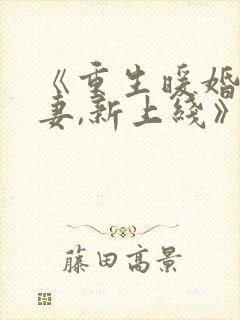 《重生暖婚
妻,新上线》
藤田高景